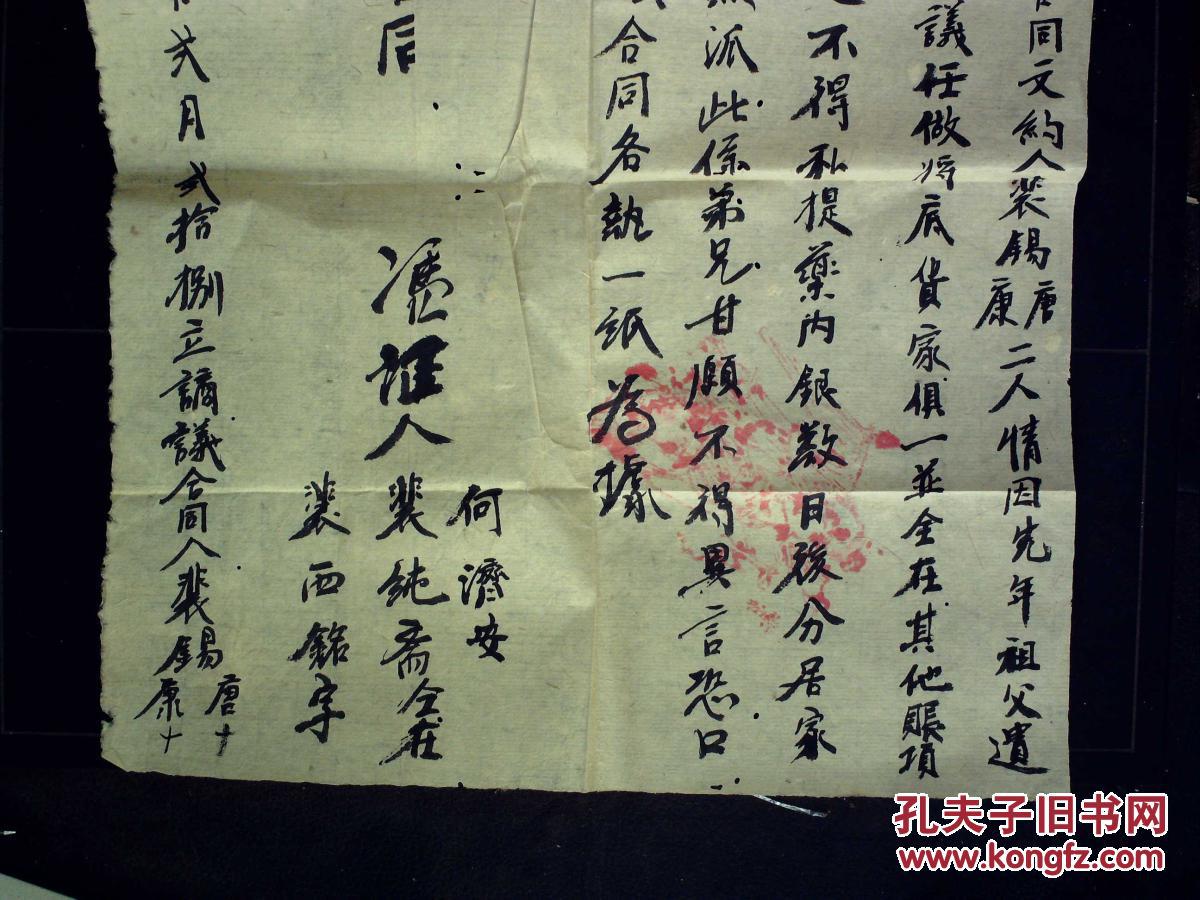 同文約人裴錫唐康二人情因先年祖父遺
議任做將底貨家俱一並全在其他賬項
不得私提藥內銀数日後分居家
派此係弟兄甘願不得異言恐口
合同各執一紙為據
后
何濟安
憑證人裴純斋仝在
裴西銘字
弍月弍拾捌立謫議合同人裴錫唐十康十
孔夫子旧书网
www.kongfz.com